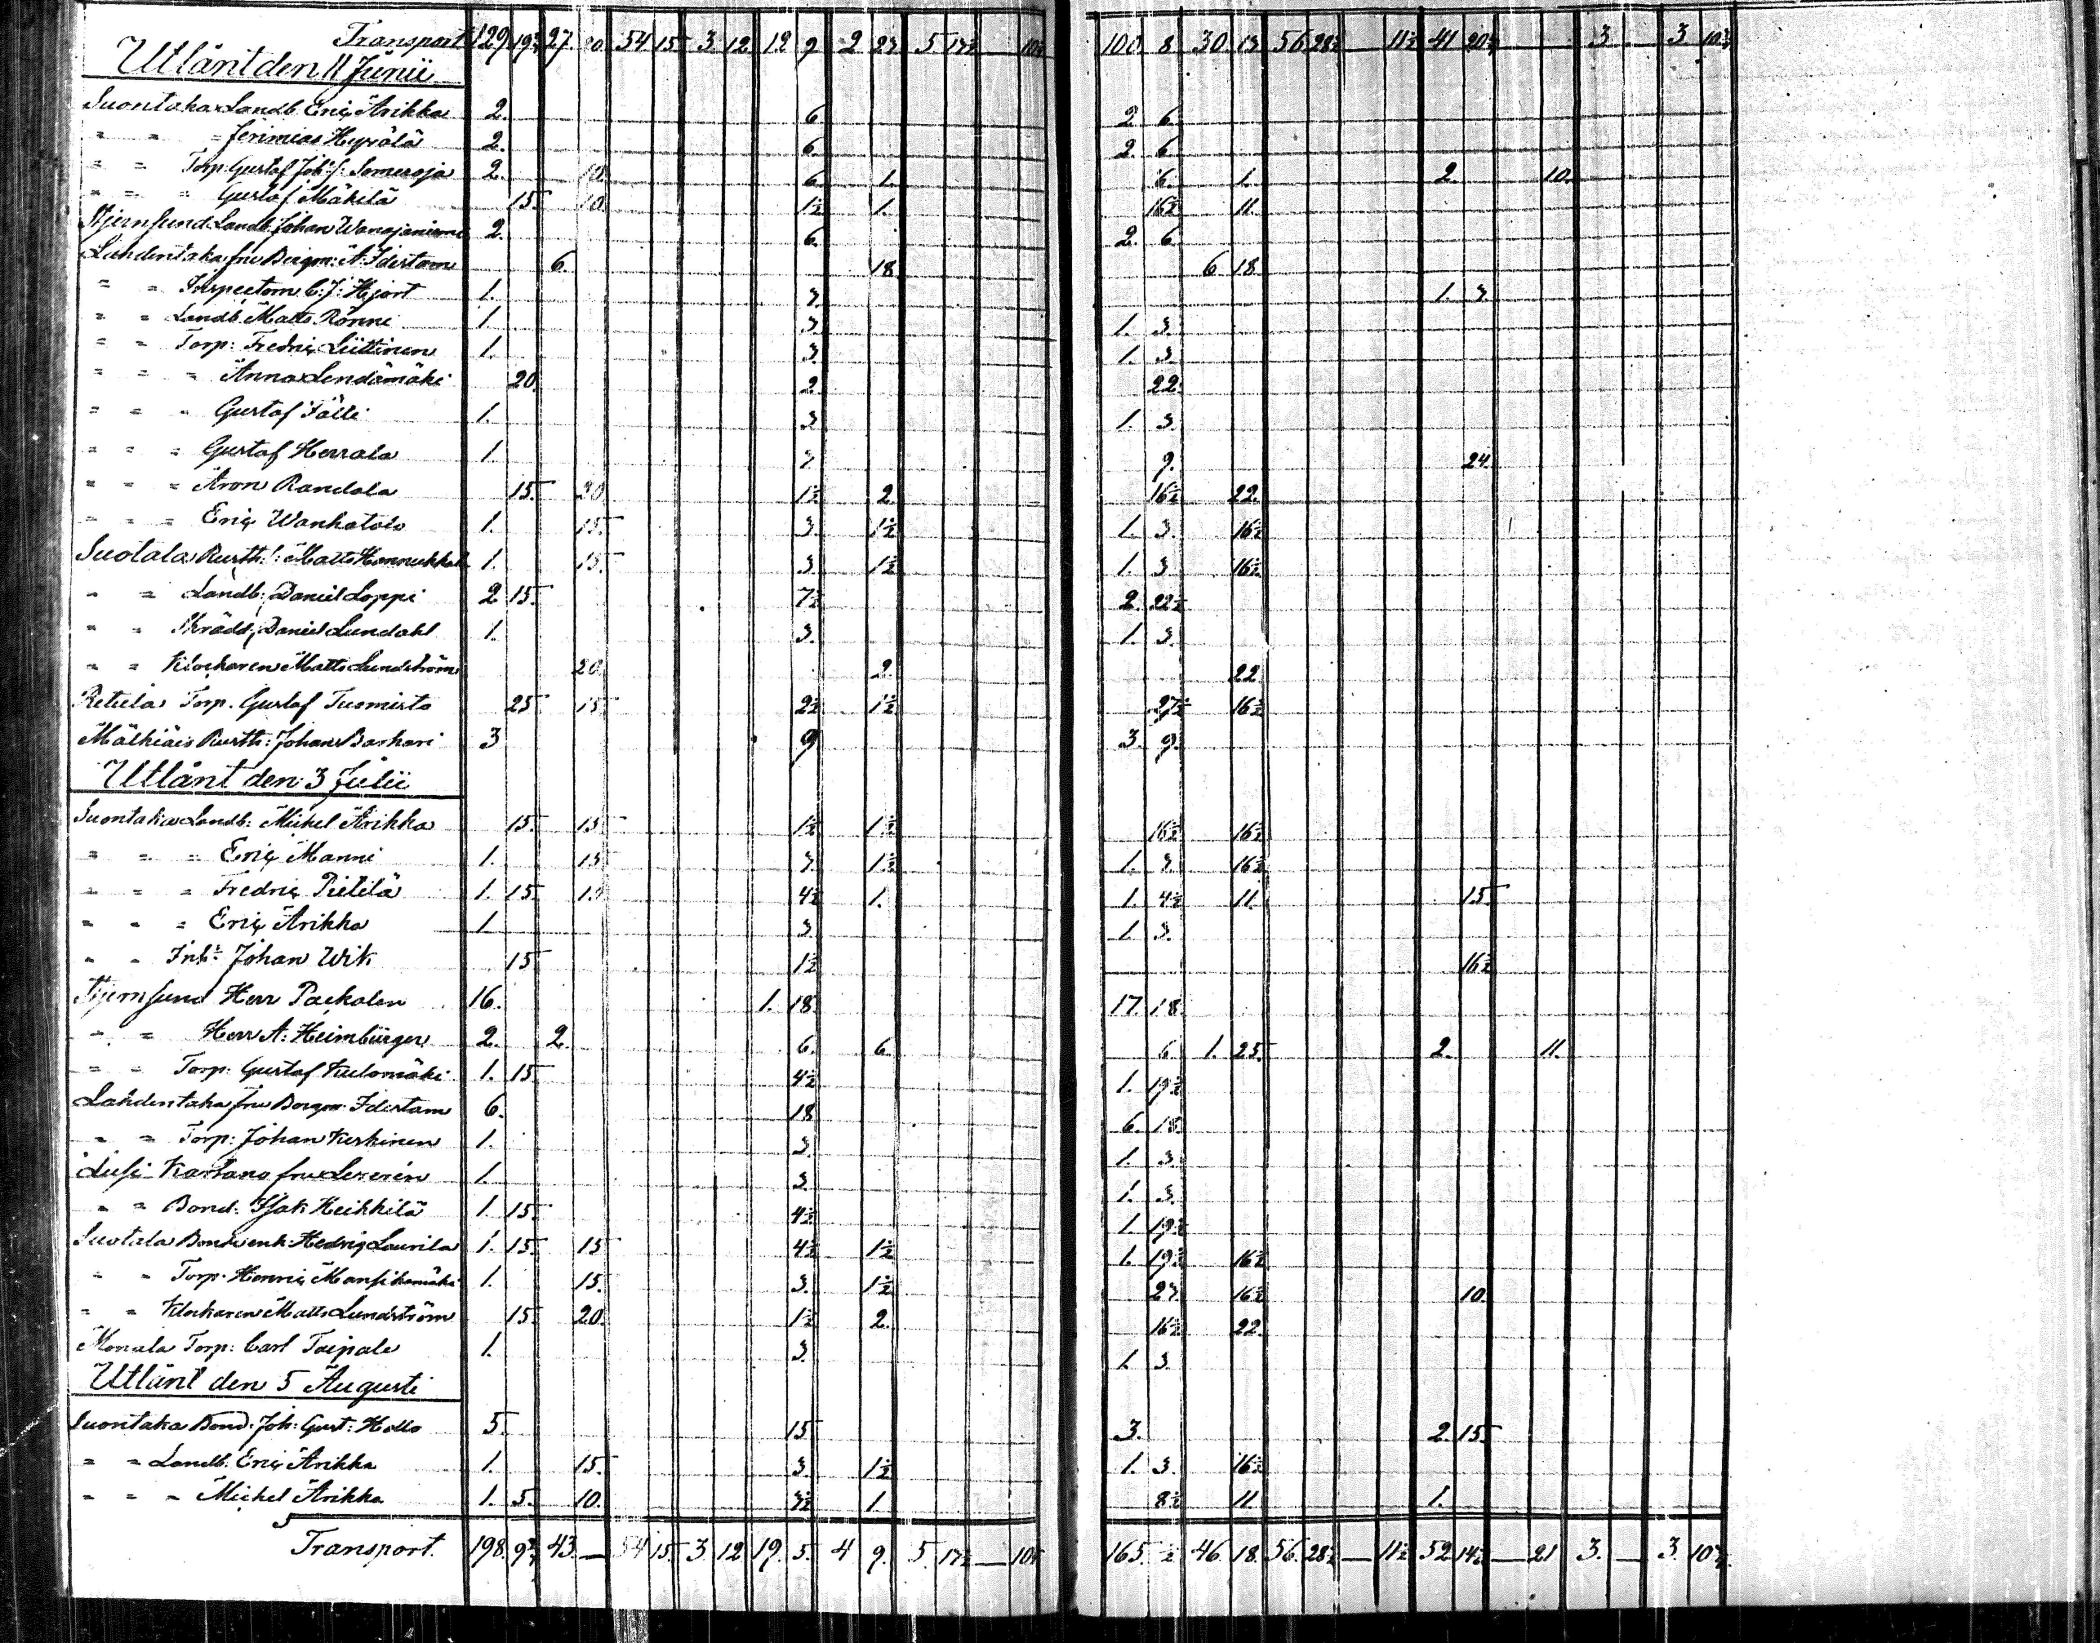 Transport 129 19¾ 27. 20 54 15 3 12 12 9 2 23 5 17½ — 10½ 100 8 30 13 56 28½ — 11½ 41 20½ 3 3 10¾
Utlånt den 11 Junii
Suontaka Landb. Eriq Arikka 2. 6 2 6
" " " Jerimias Hyrälä 2. 6. 2. 6
" " Torp: Gustaf Joh:s: Someroja 2. 10. 6 1. 6. 1. 2. 10.
" " " Gustaf Mäkilä 15. 10. 1½ 1. 16½ 11.
Stjernsund Landb. Johan Wanajaniemi 2. 6. 2. 6
Lahdentaka fru Bergm: A: Idestam 6. 18 6 18
" " Inspectorn C: J: Hjort 1. 3. 1. 3.
" " Landb. Matts Rönni 1. 3. 1. 3.
" " Torp: Fredriq Liittinen 1. 3. 1. 3.
" " " Anna Lendämäki 20. 2. 22.
" " " Gustaf Fälti 1. 3 1. 3.
" " " Gustaf Herrala 1. 3 9. 24.
" " " Aron Randala 15. 20 1½ 2. 16½ 22.
" " " Eriq Wanhatalo 1. 15. 3. 1½ 1. 3. 16½
Suotala Rustth: Matts Hannukkala 1. 15. 3. 1½ 1. 3. 16½
" " Landb: Daniel Loppi 2 15. 7½ 2. 22½
" " Skrädd: Daniel Lundahl 1. 3. 1. 3.
" " Klockaren Matts Lundström 20. 2. 22.
Retula Torp. Gustaf Tuomisto 25 15. 2½ 1½ 27½ 16½
Mälkiäis Rustth: Johan Barkari 3 9 3. 9.
Utlånt den 3 Julii
Suontaka Landb: Michel Arikka 15. 15. 1½ 1½ 16½ 16½
" " " Eriq Manni 1. 15 3. 1½ 1. 3. 16½
" " " Fredriq Pietilä 1. 15. 10 4½ 1. 1. 4½ 11. 15.
" " " Eriq Arikka 1 3. 1. 3.
" " Inh: Johan Wik 15 1½ 16½
Stjernsund Herr Packalen 16. 1. 18. 17. 18.
" " Herr A: Heimbürger 2. 2. 6. 6. 6 1. 25. 2. 11.
" " Torp: Gustaf Kulomäki 1. 15. 4½ 1. 19½
Lahdentaka fru Bergm: Idestam 6. 18 6. 18.
" " Torp: Johan Kerkinen 1. 3. 1. 3.
Lusi Kartano fru Lexerin 1. 3. 1. 3.
" " Bond: Isak Heikkilä 1. 15. 4½ 1. 19½
Suotala Bond: enk: Hedvig Laurila 1. 15. 15 4½ 1½ 1. 19½ 16½
" " Torp: Henriq Mansikamäki 1. 15. 3. 1½ 23. 16½ 10.
" " Klockaren Matts Lundström 15. 20. 1½ 2. 16½ 22.
Monala Torp: Carl Taipale 1. 3. 1 3.
Utlånt den 5 Augusti
Suontaka Bond: Joh: Gust: Hollo 5. 15 3. 2. 15.
" " Landb: Eriq Arikka 1. 15. 3. 1½ 1. 3. 16½
" " " Michel Arikka 1. 5. 10. 3½ 1. 8½ 11 1.
Transport. 198. 9¾ 43. — 54 15. 3 12 19. 5. 4 9. 5. 17½ — 10½ 165. ½ 46. 18. 56. 28½ — 11½ 52 14½ — 21 3. — 3. 10¾